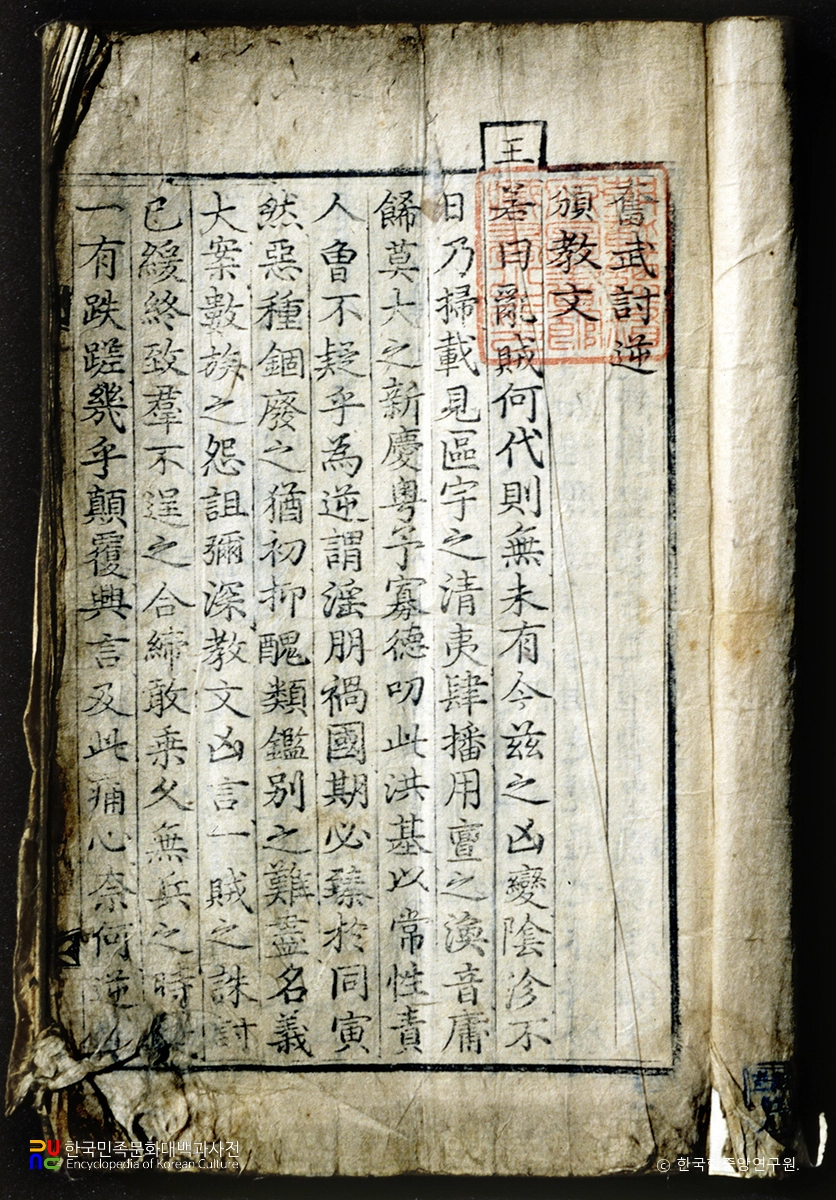 奮武討逆
頒教文
王
若曰亂賊何代則無未有今玆之凶變陰沴不
日乃掃載見區宇之清夷肆播用亶之渙音庸
餙莫大之新慶粤予寡德叨此洪基以常性責
人曾不疑乎為逆謂淫朋禍國期必臻於同寅
然惡種錮廢之猶初抑醜類鑑別之難盡名義
大案數族之怨詛彌深教文凶言一賊之誅討
已緩終致羣不逞之合締敢乘久無兵之時
一有跌蹉幾乎顛覆興言及此痛心奈何逆
한국민족문화대백과사전
Encyclopedia of Korean Culture
© 한국학중앙연구원.